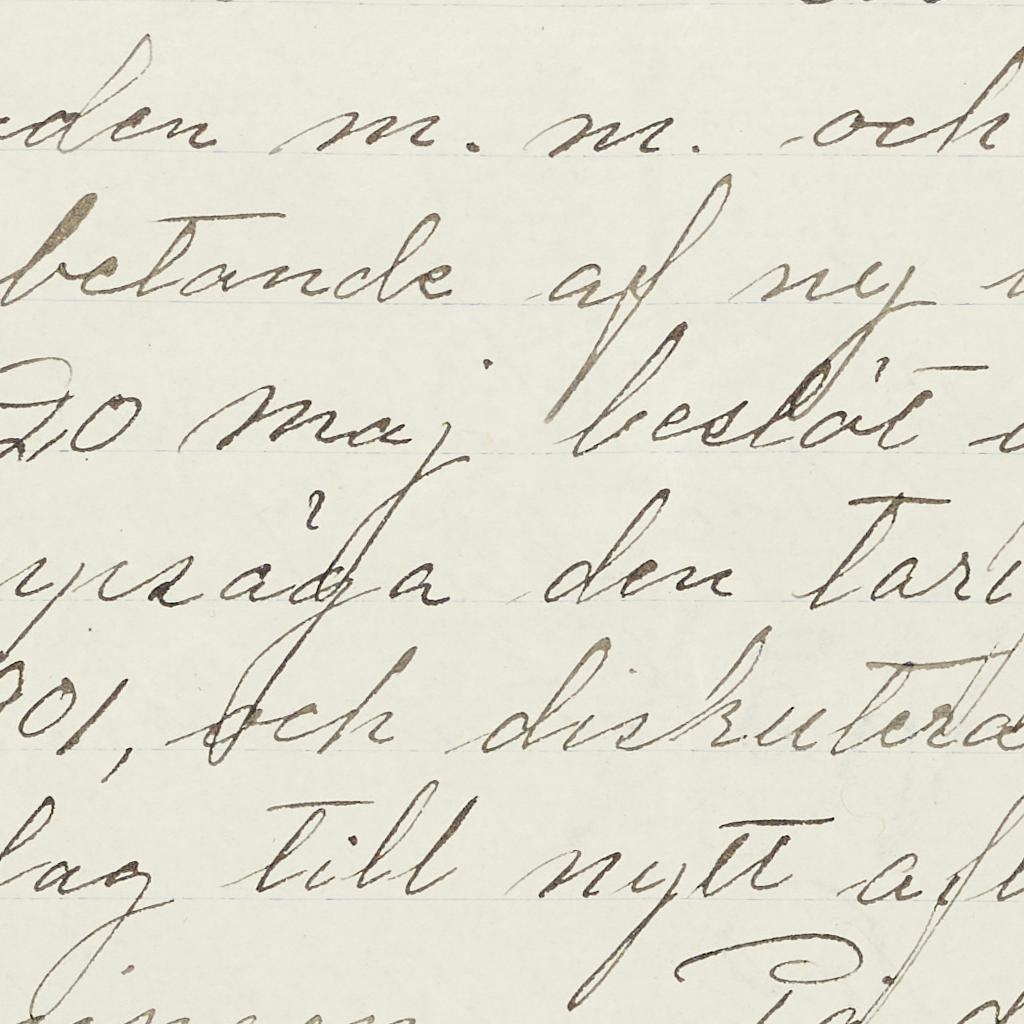 den m. m. och
betande af ny
20 maj beslöt
uppsäga den tari
901, och diskutera
lag till nytt aft
ingen På d